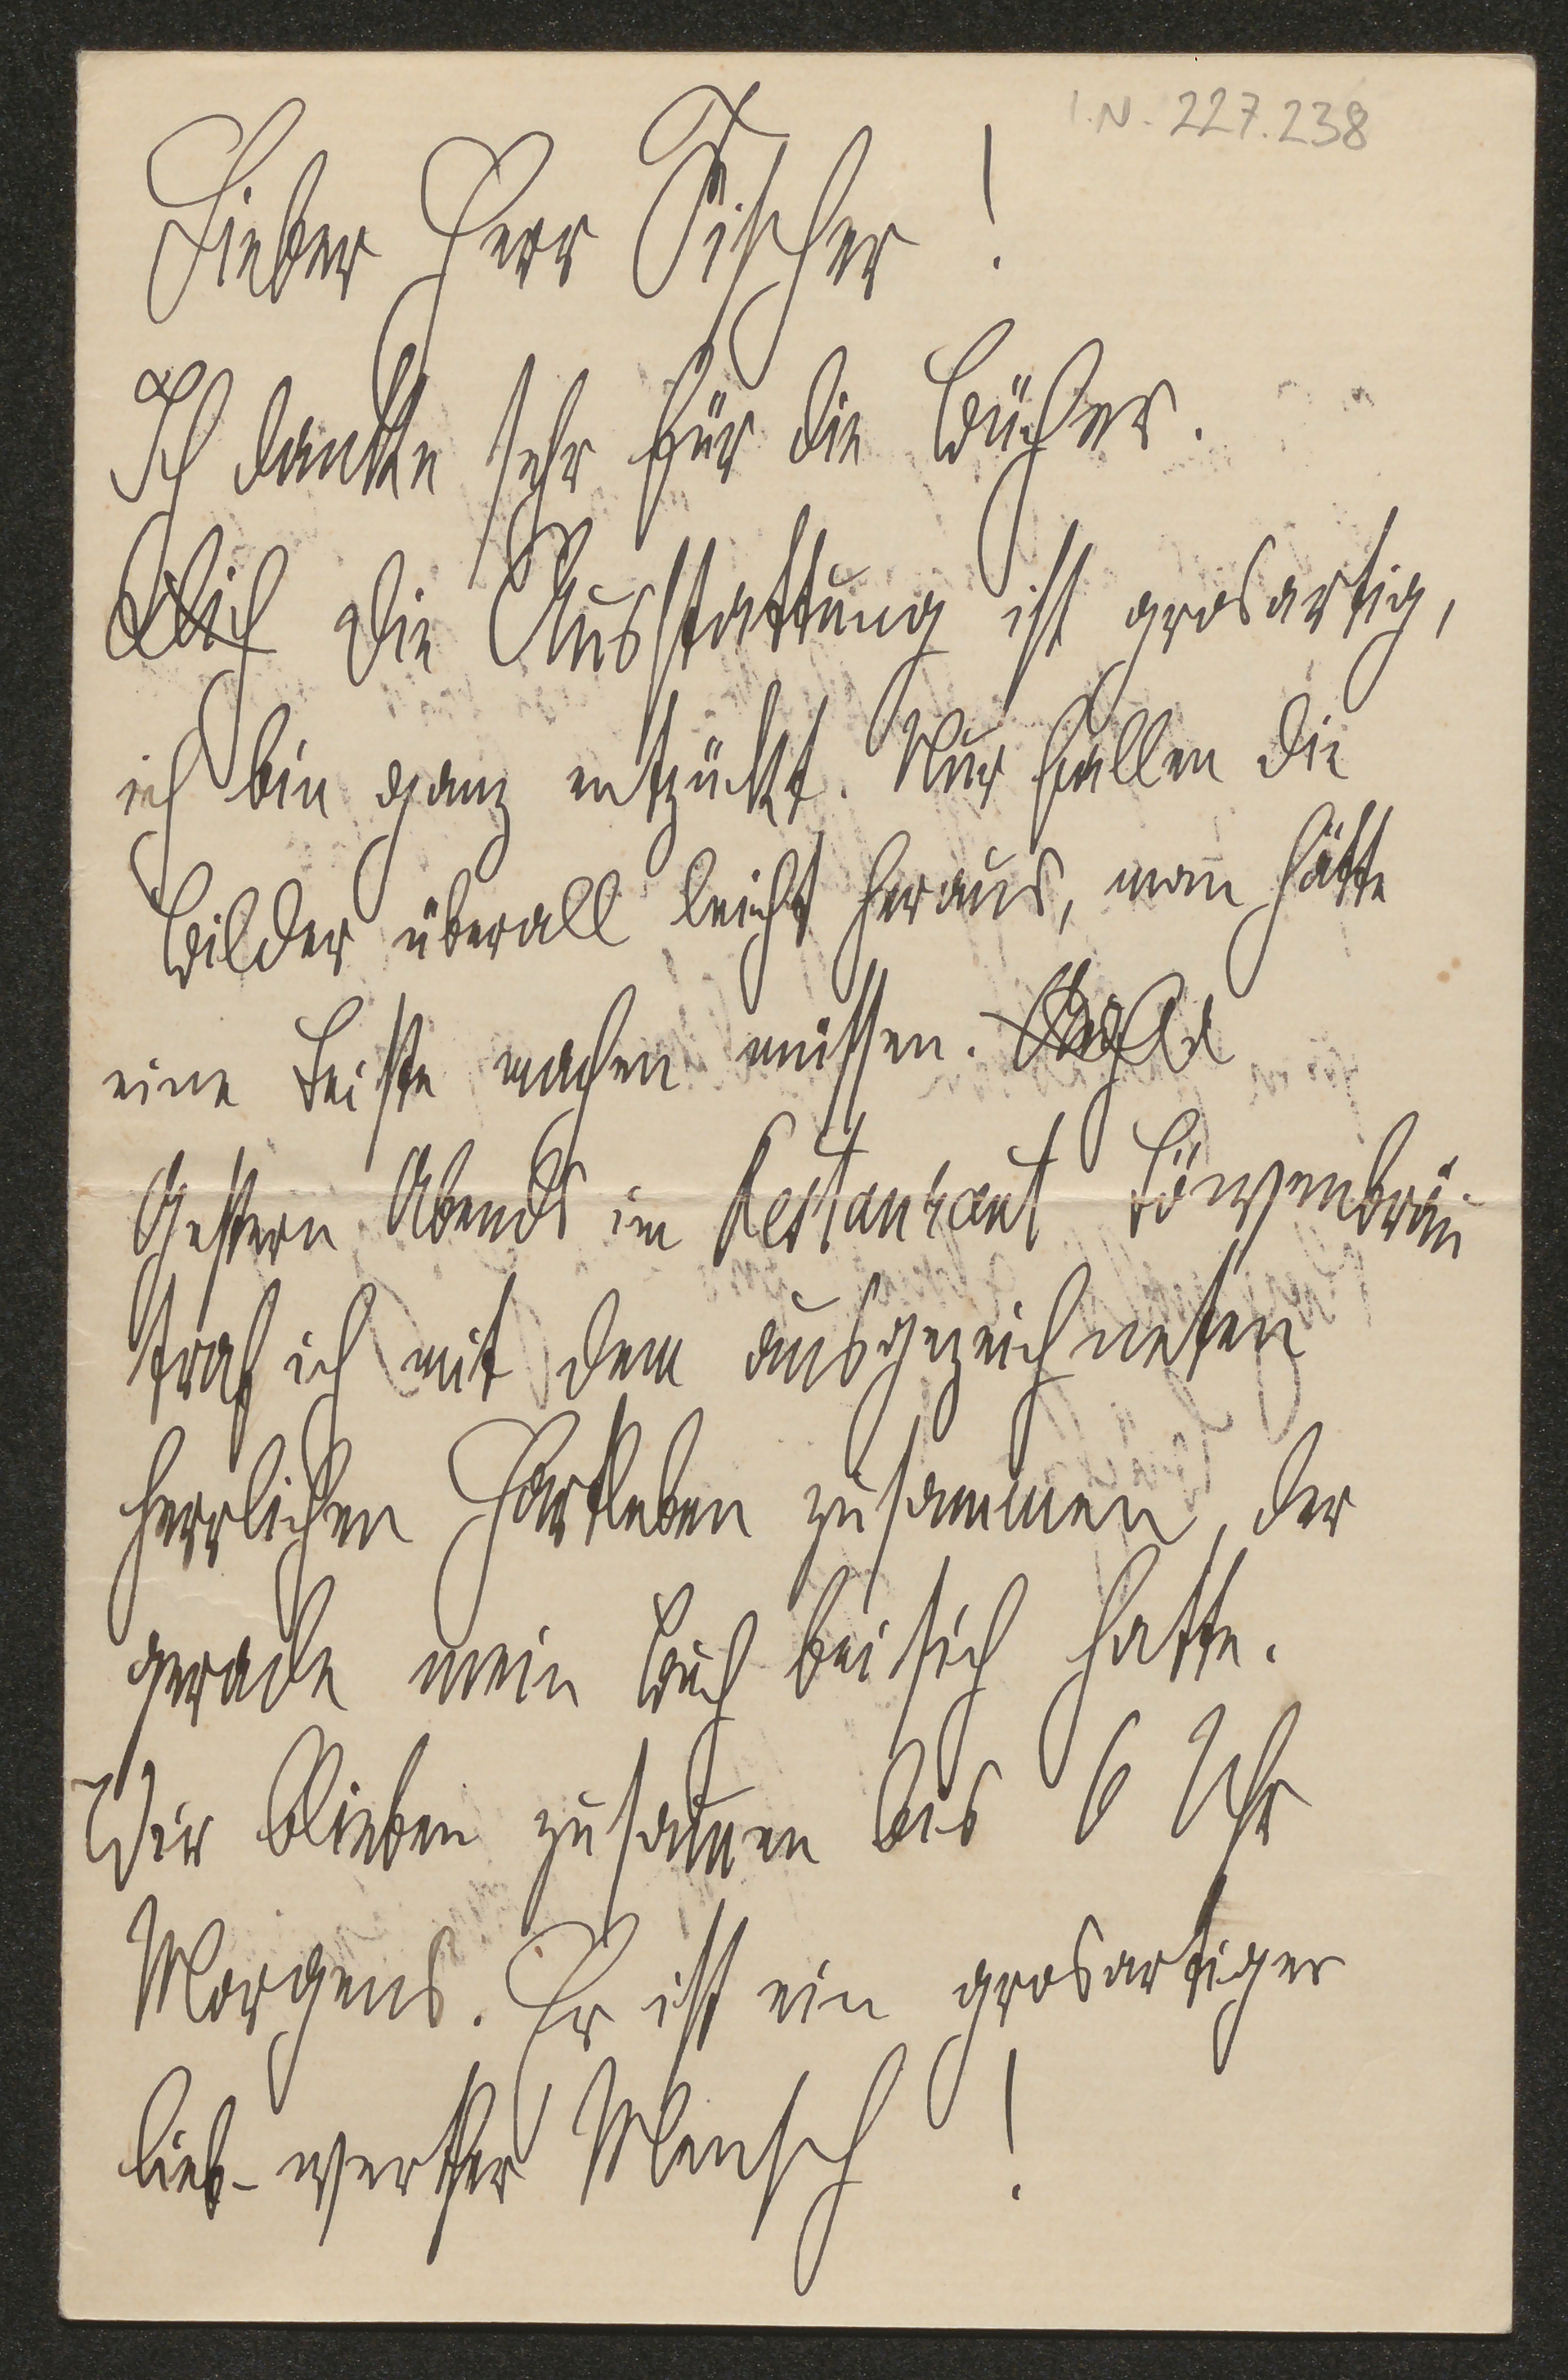 I.N. 227.238
Lieber Herr Fischer!
Ich danke sehr für die Bücher.
Die Ausstattung ist grosartig,
ich bin ganz entzückt. Nur fallen die
Bilder überall leicht heraus, man hätte
eine Leiste machen müssen.
Gestern Abends im Restaurant Löwenbräu
traf ich mit dem ausgezeichneten
herrlichen Hartleben zusammen, der
gerade mein Buch bei sich hatte.
Wir blieben zusam̄en bis 6 Uhr
Morgens. Er ist ein grosartiger
lieb-werther Mensch!